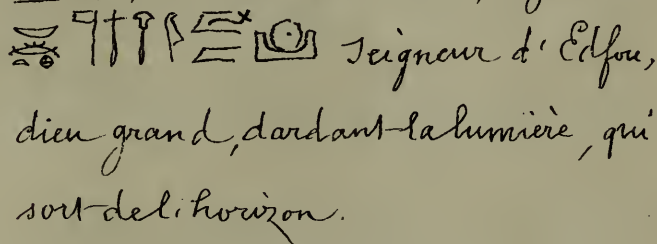 Seigneur d'Edfou,
dieu grand, dardant la lumière, qui
sort de l'horizon.